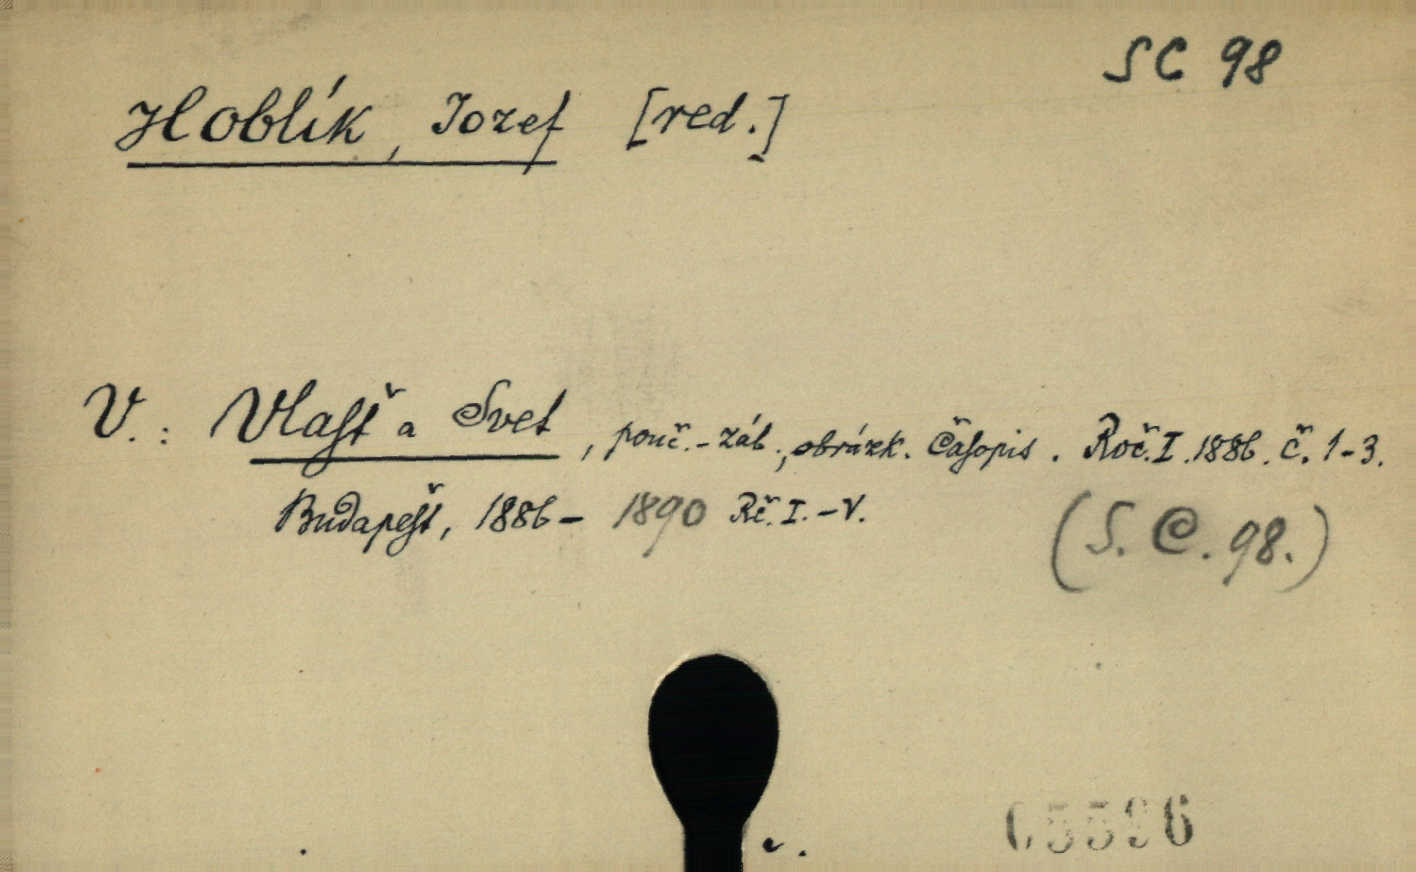 SC 98
Hoblík, Jozef [red.]
V.: Vlasť a Svet, pouč.-záb., obrázk. Časopis. Roč. I. 1886. č. 1-3.
Budapešť, 1886- 1890 Rč. I.-V.
(S. C. 98.)
05596